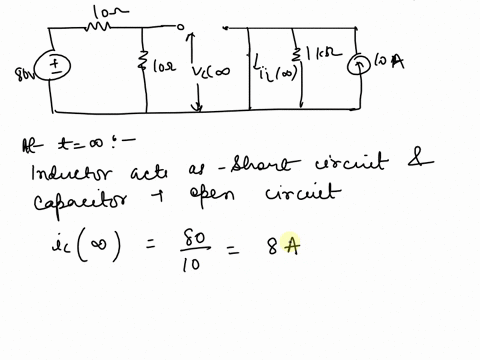 10Ω
80V
10Ω
Vc(∞
iL(∞)
1kΩ
10A
At t=∞ :-
Inductor acts as - Short circuit &
Capacitor → open circuit
ic(∞) = 80/10 = 8 A